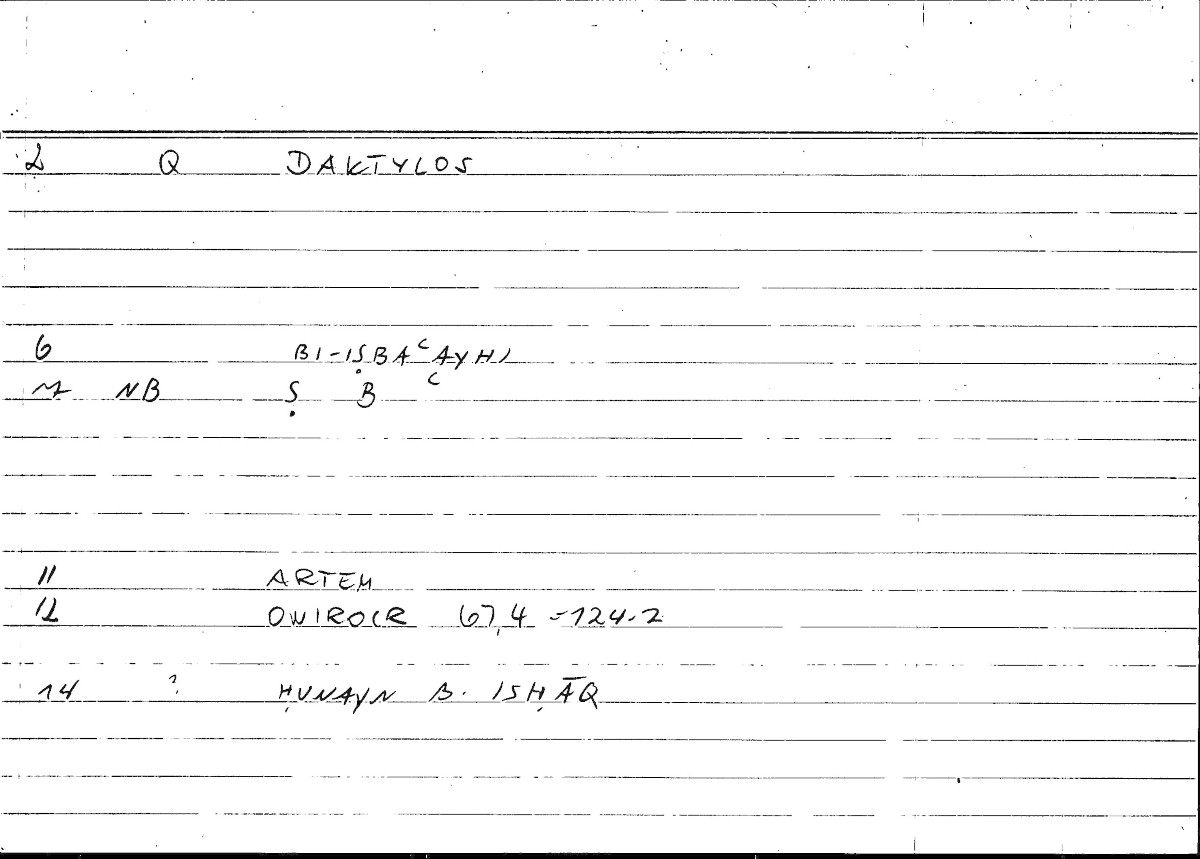 2 Q DAKTYLOS
6 BI-IṢBAʿAYHI
7 NB Ṣ B ʿ
11 ARTEM
12 ONIROCR 67,4 = 124.2
14 ? ḤUNAYN B. ISḤĀQ